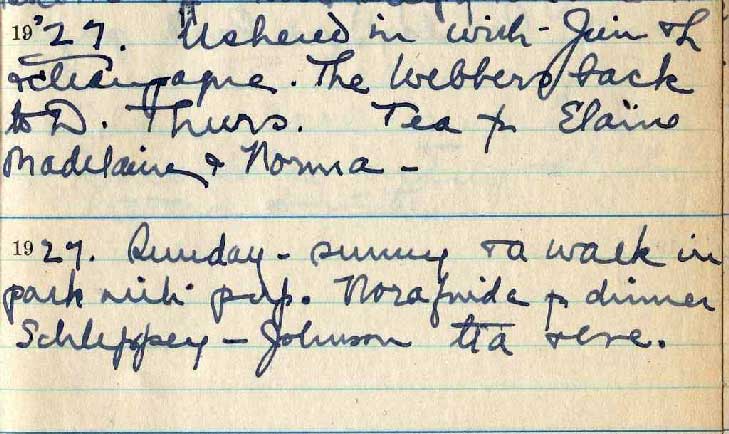 1927. Ushered in with - Jim & L
& champagne. The Webbers back
to D. Thurs. Tea for Elaine
Madelaine & Norma -
1927. Sunday - sunny & a walk in
park with pup. Nora for dinner
Schleppey - Johnson tea & eve.